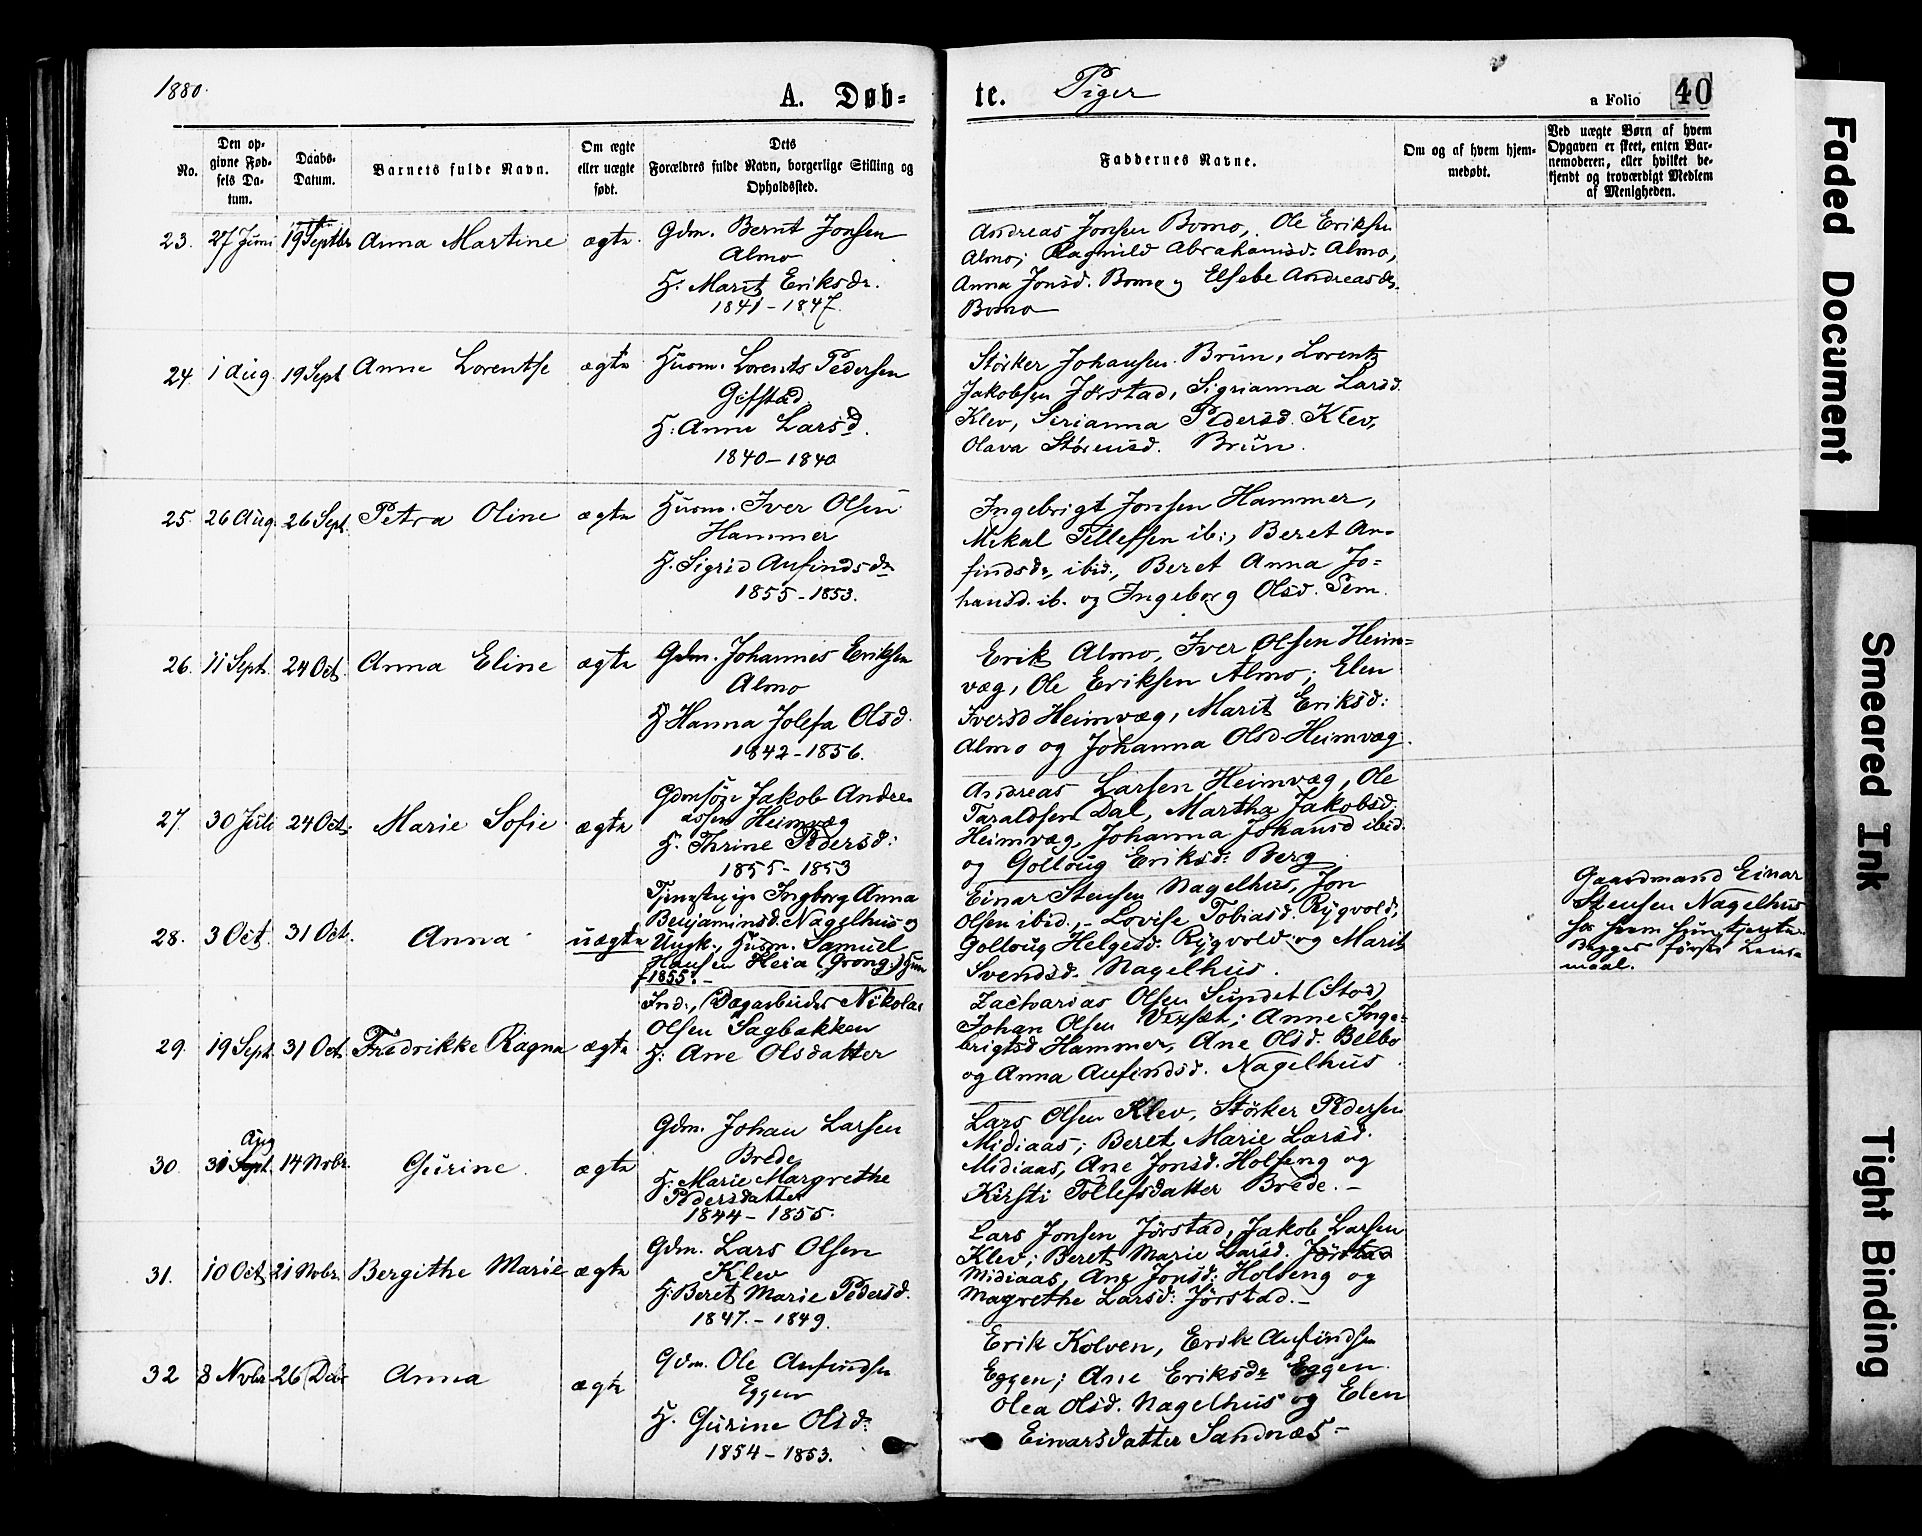 1880.
A. Døb=
te. Piger
a Folio 40
No.
Den op-
givne Fød-
sels Da-
tum.
Daabs-
Datum.
Barnets fulde Navn.
Om ægte
eller uægte
født.
Dets
Forældres fulde Navn, borgerlige Stilling og
Opholdssted.
Faddernes Navne.
Om og af hvem hjem-
medøbt.
Ved uægte Børn af hvem
Opgaven er skeet, enten Bar-
nemoderen, eller hvilket be-
kjendt og troværdigt Medlem
af Menigheden.
23. 27 Juni 19 Septbr Anna Martine ægte
Gdm. Bernt Jonsen
Almo
H. Marit Eriksdr.
1841-1847.
Andreas Jonsen Bomo, Ole Eriksen
Almo; Ragnild Abrahamsd. Almo,
Anna Jonsd. Bomo og Elsebe Andreasdr.
Bomo
24. 1 Aug. 19 Sept Anne Lorentse ægte
Husm. Lorents Pedersen
Gifstad
H. Anne Larsd.
1840-1840
Størker Johansen Brun, Lorentz
Jakobsen Jørstad, Sigrianna Larsd.
Klev, Sirianna Pedersd. Klev,
Olava Størensd. Brun.
25. 26 Aug. 26 Sept. Petra Oline ægte
Husm. Iver Olsen
Hammer
H. Sigrid Anfindsdr
1855-1853.
Ingebrigt Jonsen Hammer,
Mikal Tillefsen ib:, Beret An-
findsdr, ibid., Beret Anna Jo=
hansd. ib. og Ingeborg Olsd. Sem.
26. 11 Sept. 24 Oct. Anna Eline ægte
Gdm. Johannes Eriksen
Almo
H Hanna Jolefa Olsd.
1842-1856.
Erik Almo, Iver Olsen Heim=
væg, Ole Eriksen Almo; Elen
Iversd Heimvæg, Marit Eriksd:
Almo og Johanna Olsd Heimvæg.
27. 30 Juli 24 Oct. Marie Sofie ægte
Gdmsøn Jakob Andre-
assen Heimvæg
H. Thrine Pedersd:
1855-1853
Andreas Larsen Heimvæg, Ole
Taraldsen Dal, Martha Jakobsd.
Heimvæg, Johanna Johansd ibid.
og Gollaug Eriksd: Berg
28. 3 Oct. 31 Oct. Anna uægte
Tjenestepige Ingborg Anna
Benjaminsd. Nagelhus og
Ungk., Husm. Samuel
Hansen Heia (Grong.) Hun
f 1855.-
Einar Stensen Nagelhus, Jon
Olsen ibid.,- Lovise Tobiasd. Rygvold,
Gollaug Helgesd. Rygvold og Marit
Svendsd. Nagelhus.
Gaardmand Einar
Stensen Nagelhus
hos hvem hun tjente.
Begges første Leier=
maal.
29. 19 Sept 31 Oct. Fredrikke Ragna ægte
Ind:, (Dagarbeider Nikolai
Olsen Sagbakken
H. Ane Olsdatter
Zacharias Olsen Sundet (Stod)
Johan Olsen Vexsæt; Anne Inge-
brigtsd Hammer, Ane Olsd. Belbo
og Anna Anfindsd. Nagelhus
Aug
30. 31 Sept. 14 Nobr. Gurine ægte
Gdm. Johan Larsen
Brede
H. Marie Margrethe
Pedersdatter
1844-1855.
Lars Olsen Klev, Størker Pedersen
Midiaas; Beret Marie Larsd.
Midiaas, Ane Jonsd. Holseng og
Kirsti Tollefsdatter Brede.-
31. 10 Oct. 21 Nobr. Bergithe Marie ægte
Gdm. Lars Olsen
Klev
H. Beret Marie Pedersd.
1847.-1849.
Lars Jonsen Jørstad, Jakob Larsen
Klev; Beret Marie Larsd. Jørstad
Midiaas, Ane Jonsd: Holseng og
Magrethe Larsd: Jørstad.-
32 8 Nvbr 26 Debr Anna ægte
Gdm. Ole Anfindsen
Eggen
H. Gurine Olsdr
1854-1853.
Erik Kolven, Erik Anfindsen
Eggen; Ane Eriksdr Eggen
Olea Olsd. Nagelhus og Elen
Einarsdatter Sandnæs-
Faded Document
Smeared Ink
Tight Binding